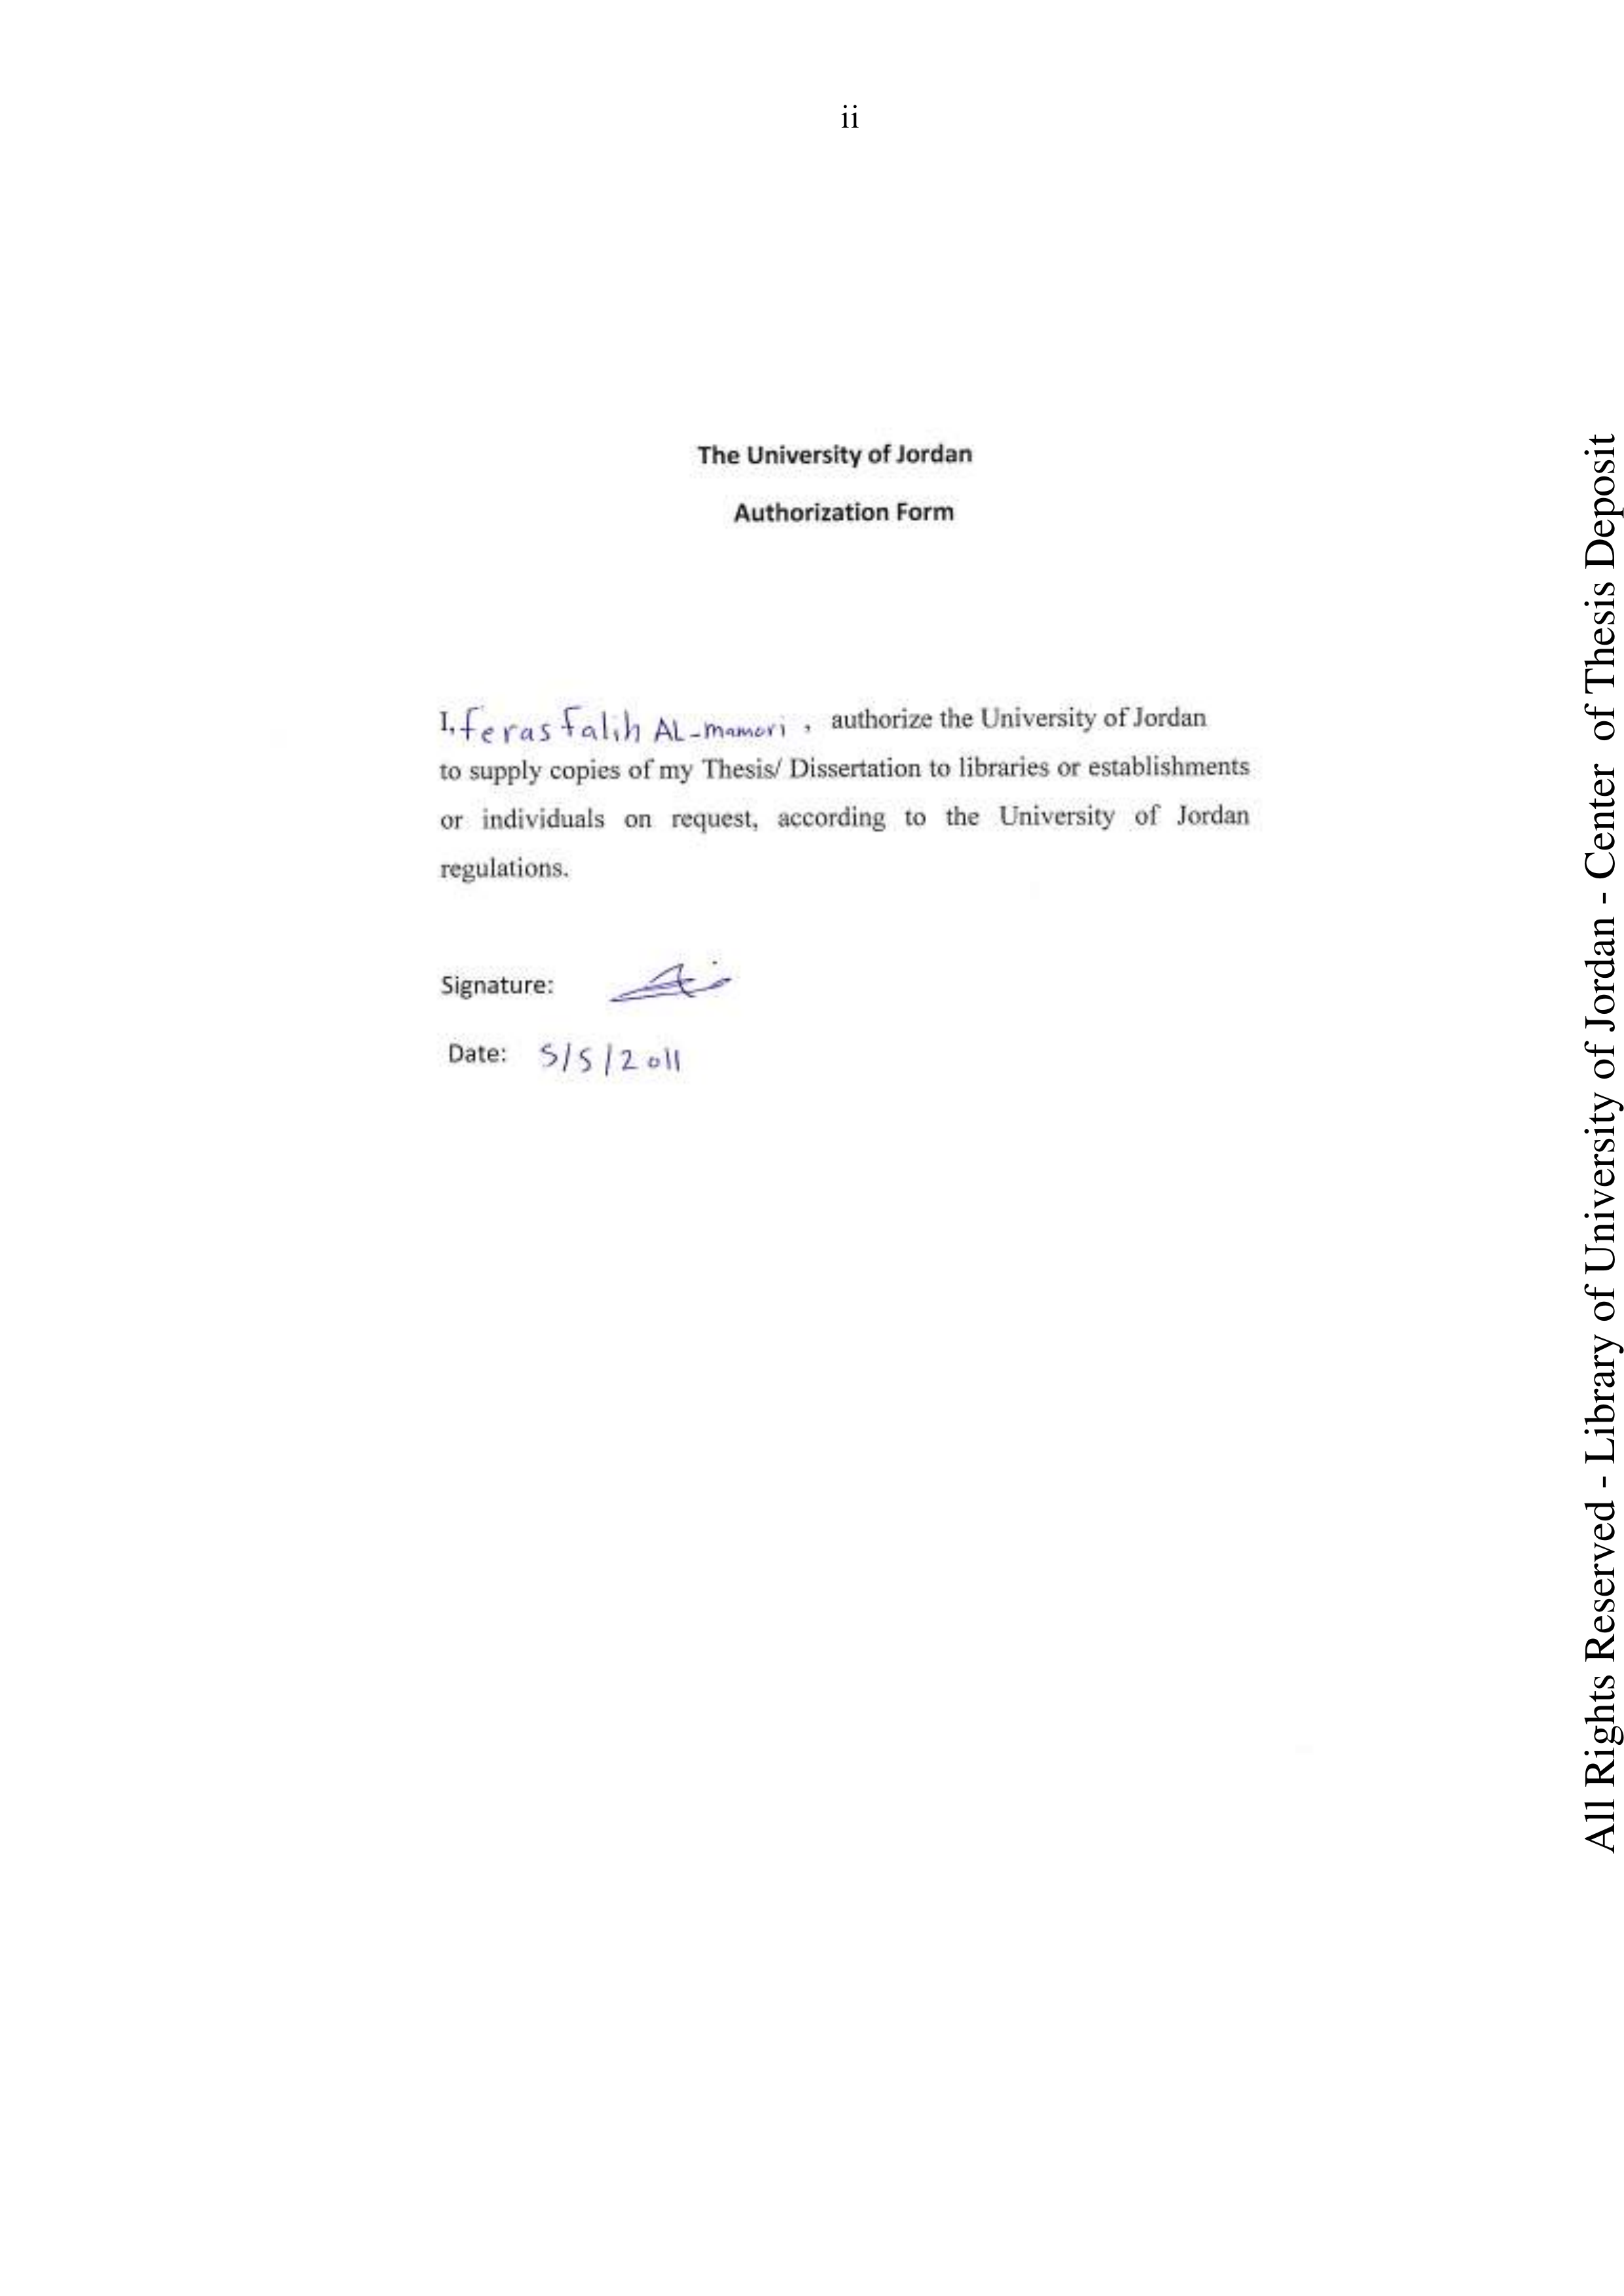 ii
The University of Jordan
Authorization Form
I, feras falih AL-mamori , authorize the University of Jordan
to supply copies of my Thesis/ Dissertation to libraries or establishments
or individuals on request, according to the University of Jordan
regulations.
Signature:
Date: 5/5/2011
All Rights Reserved - Library of University of Jordan - Center of Thesis Deposit